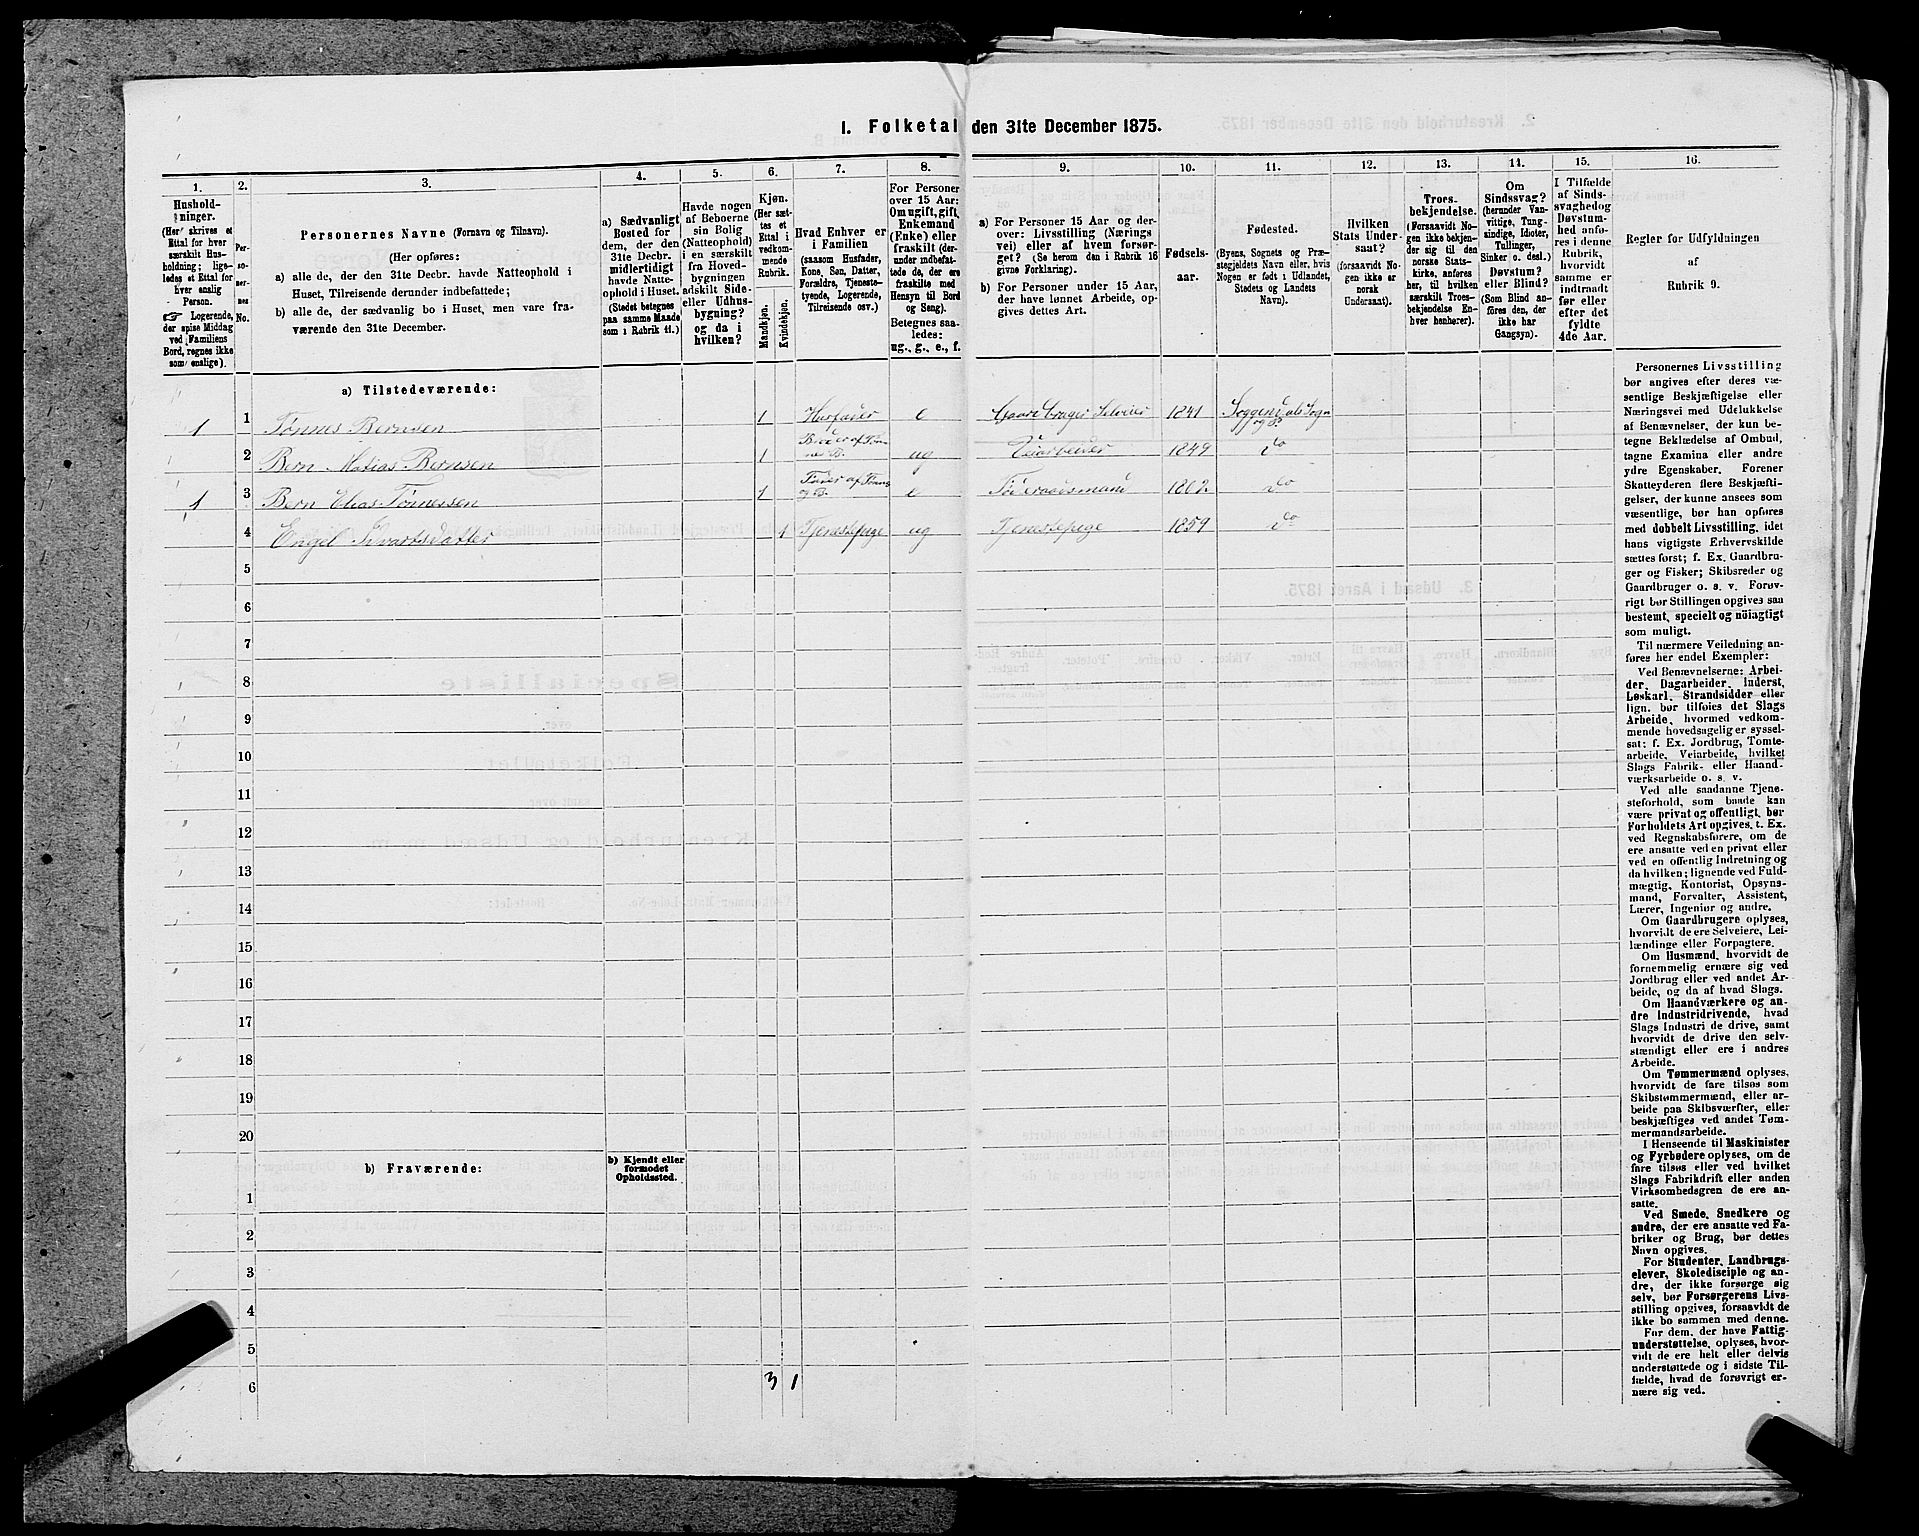 I. Folketal den 31te December 1875.
1. 2. 3. 4. 5. 6. 7. 8. 9. 10. 11. 12. 13. 14. 15. 16.
Hushold-
ninger.
(Her skrives et
Ettal for hver
særskilt Hus-
holdning; lige-
ledes et Ettal for
hver enslig
Person.
☞ Logerende,
der spise Middag
ved Familiens
Bord, regnes ikke
som enslige).
Per-
so-
ner-
nes
No.
Personernes Navne (Fornavn og Tilnavn).
(Her opføres:
a) alle de, der den 31te Decbr. havde Natteophold i
Huset, Tilreisende derunder indbefattede;
b) alle de, der sædvanlig bo i Huset, men vare fra-
værende den 31te December.
a) Sædvanligt
Bosted for
dem, der den
31te Decbr.
midlertidigt
havde Natte-
ophold i Huset.
(Stedet betegnes
paa samme Maade
som i Rubrik 11.)
Havde nogen
af Beboerne
sin Bolig
(Natteophold)
i en særskilt
fra Hoved-
bygningen
adskilt Side-
eller Udhus-
bygning?
og da i
hvilken?
Kjøn.
(Her sæt-
tes et
Ettal i
vedkom-
mende
Rubrik.
Mandkjøn.
Kvindekjøn.
Hvad Enhver er
i Familien
(saasom Husfader,
Kone, Søn, Datter,
Forældre, Tjeneste-
tyende, Logerende,
Tilreisende osv.)
For Personer
over 15 Aar:
Om ugift, gift,
Enkemand
(Enke) eller
fraskilt (der-
under indbefat-
tede de, der ere
fraskilte med
Hensyn til Bord
og Seng).
Betegnes saa-
ledes:
ug., g., e., f.
a) For Personer 15 Aar og der-
over: Livsstilling (Nærings
vei) eller af hvem forsør-
get? (Se herom den i Rubrik 16
givne Forklaring).
b) For Personer under 15 Aar,
der have lønnet Arbeide, op-
gives dettes Art.
Fødsels-
aar.
Fødested.
(Byens, Sognets og Præ-
stegjeldets Navn eller, hvis
Nogen er født i Udlandet,
Stedets og Landets
Navn).
Hvilken
Stats Under-
saat?
(forsaavidt No-
gen ikke er
norsk
Undersaat).
Troes-
bekjendelse.
(Forsaavidt No-
gen ikke bekjen-
der sig til den
norske Stats-
kirke, anføres
her, til hvilken
særskilt Troes-
bekjendelse En-
hver henhører).
Om
Sindssvag?
(herunder Van-
vittige, Tung-
sindige, Idioter,
Tullinger,
Sinker o. desl.)
Døvstum?
eller Blind?
(Som Blind an-
føres den, der
ikke har
Gangsyn).
I Tilfælde
af Sinds-
svaghed og
Døvstum-
hed anfø-
res i denne
Rubrik,
hvorvidt
samme er
indtraadt
før eller
efter det
fyldte
4de Aar.
Regler for Udfyldningen
af
Rubrik 9.
a) Tilstedeværende:
1 1 Tønnes Bernsen 1 Husfader e Gaardbruger Selveier 1841 Soggendals Sogn og P.
2 Bern Matias Bernsen 1 Broder af Tønnes B. ug Veiarbeider 1849 Do
1 3 Bern Elias Tønnesen 1 Fader af Tønnes B. e Føderaadsmand 1802 Do
4 Engel Sivartsdatter 1 Tjenestepige ug Tjenestepige 1859 Do
5
6
7
8
9
10
11
12
13
14
15
16
17
18
19
20
b) Fraværende:
b) Kjendt eller
formodet
Opholdssted.
1
2
3
4
5
6
3 1
Personernes Livsstilling
bør angives efter deres væ-
sentlige Beskjæftigelse eller
Næringsvei med Udelukkelse
af Benævnelser, der kun be-
tegne Beklædelse af Ombud,
tagne Examina eller andre
ydre Egenskaber. Forener
Skatteyderen flere Beskjæfti-
gelser, der kunne ansees som
væsentlige, bør han opføres
med dobbelt Livsstilling, idet
hans vigtigste Erhvervskilde
sættes først; f. Ex. Gaardbru-
ger og Fisker; Skibsreder og
Gaardbruger o. s. v. Forøv-
rigt bør Stillingen opgives saa
bestemt, specielt og nøiagtigt
som muligt.
Til nærmere Veiledning an-
føres her endel Exempler:
Ved Benævnelserne: Arbei-
der, Dagarbeider, Inderst,
Løskarl, Strandsidder eller
lign. bør tilføies det Slags
Arbeide, hvormed vedkom-
mende hovedsagelig er syssel-
sat; f. Ex. Jordbrug, Tomte-
arbeide, Veiarbeide, hvilket
Slags Fabrik- eller Haand-
værksarbeide o. s. v.
Ved alle saadanne Tjene-
steforhold, som baade kan
være privat og offentligt, bør
Forholdets Art opgives, t. Ex.
ved Regnskabsførere, om de
ere ansatte ved en privat eller
ved en offentlig Indretning og
da hvilken; lignende ved Fuld-
mægtig, Kontorist, Opsyns-
mand, Forvalter, Assistent,
Lærer, Ingeniør og andre.
Om Gaardbrugere oplyses,
hvorvidt de ere Selveiere, Lei-
lændinge eller Forpagtere.
Om Husmænd, hvorvidt de
fornemmelig ernære sig ved
Jordbrug eller ved andet Ar-
beide, og da af hvad Slags.
Om Haandværkere og an-
dre Industridrivende, hvad
Slags Industri de drive, samt
hvorvidt de drive den selv-
stændigt eller ere i andres
Arbeide.
Om Tømmermænd oplyses,
hvorvidt de fare tilsøs som
Skibstømmermænd, eller ar-
beide paa Skibsværfter, eller
beskjæftiges ved andet Tøm-
mermandsarbeide.
I Henseende til Maskinister
og Fyrbødere oplyses, om de
fare tilsøs eller ved hvilket
Slags Fabrikdrift eller anden
Virksomhedsgren de ere an-
satte.
Ved Smede, Snedkere og
andre, der ere ansatte ved Fa-
briker og Brug, bør dettes
Navn opgives.
For Studenter, Landbrugs-
elever, Skoledisciple og an-
dre, der ikke forsørge sig
selv, bør Forsørgerens Livs-
stilling opgives, forsaavidt de
ikke bo sammen med denne.
For dem, der have Fattig-
understøttelse, oplyses, hvor-
vidt de ere helt eller delvis
understøttede og i sidste Til-
fælde, hvad de forøvrigt er-
nære sig ved.